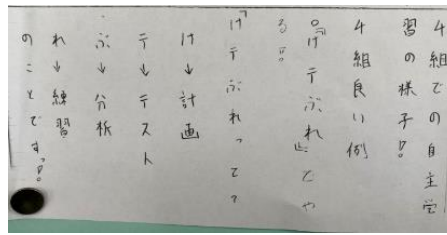 4組での自主学
習の様子！
4組良い例
。「けテぶれ」とや
る！
「けテぶれって？
け→計画
テ→テスト
ぶ→分析
れ→練習
のことです！